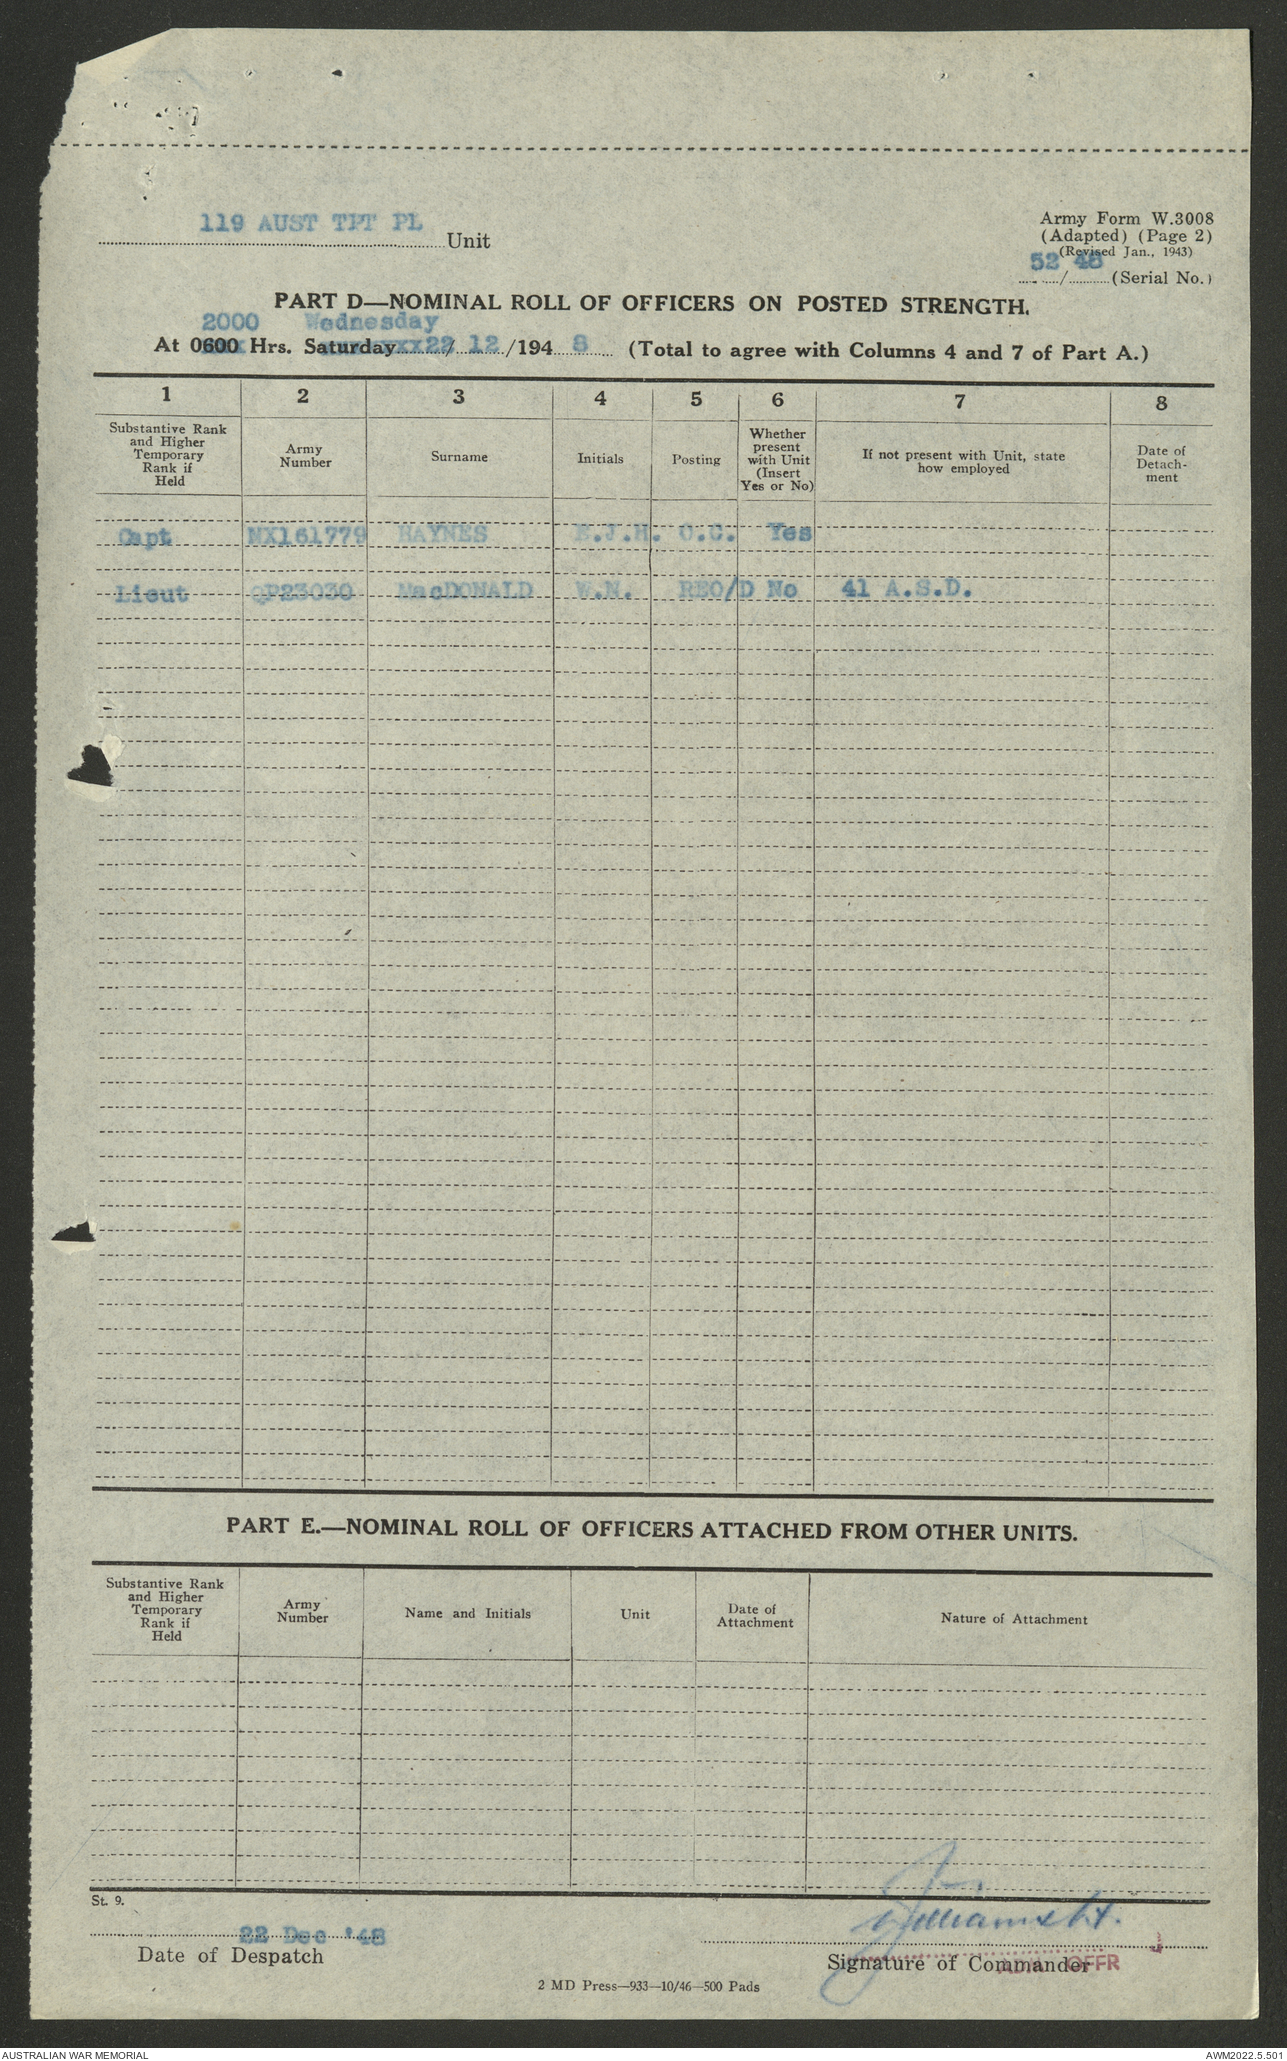 119 AUST TPT PL Unit
Army Form W.3008
(Adapted) (Page 2)
(Revised Jan., 1943)
52 / 48 (Serial No.)
PART D—NOMINAL ROLL OF OFFICERS ON POSTED STRENGTH.
2000 Wednesday
At 0600 Hrs. Saturday 22/ 12 /194 8 (Total to agree with Columns 4 and 7 of Part A.)
1 2 3 4 5 6 7 8
Substantive Rank and Higher Temporary Rank if Held
Army Number
Surname
Initials
Posting
Whether present with Unit (Insert Yes or No)
If not present with Unit, state how employed
Date of Detach-ment
Capt NX161779 HAYNES E.J.H. O.C. Yes
Lieut QP23030 MacDONALD W.N. REO/D No 41 A.S.D.
PART E.—NOMINAL ROLL OF OFFICERS ATTACHED FROM OTHER UNITS.
Substantive Rank and Higher Temporary Rank if Held
Army Number
Name and Initials
Unit
Date of Attachment
Nature of Attachment
St. 9.
22 Dec '48
Date of Despatch
Signature of Commander
OFFR
2 MD Press—933—10/46—500 Pads
AUSTRALIAN WAR MEMORIAL
AWM2022.5.501